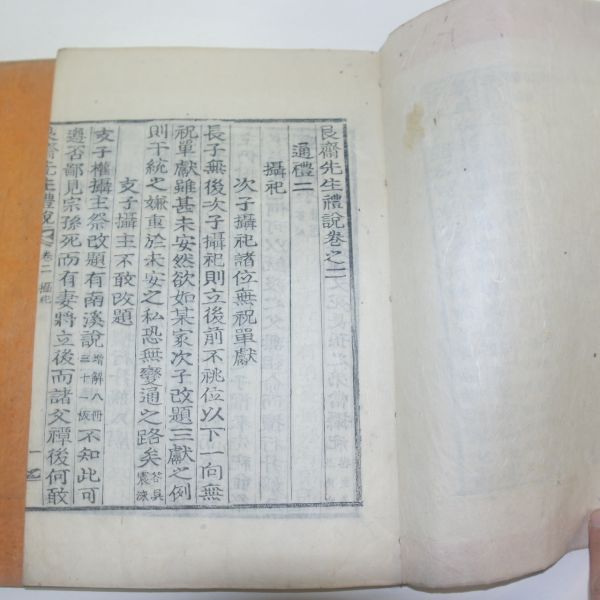 艮齋先生禮說卷之二
通禮二
攝祀
次子攝祀諸位無祝單獻
長子無後次子攝祀則立後前不祧位以下一向無
祝單獻雖甚未安然欲如某家次子改題三獻之例
則干統之嫌重於未安之私恐無變通之路矣 答吳震泳
支子攝主不敢改題
支子權攝主祭改題有南溪說 增解八冊三十一板 不知此可
遵否鄙見宗孫死而有妻將立後而諸父禫後何敢
艮齋先生禮說 卷二 攝祀 一